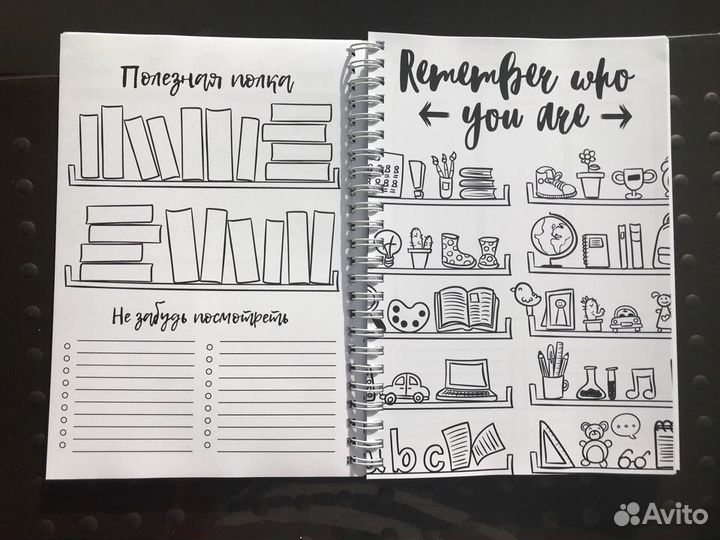 Полезная полка
Не забудь посмотреть
Remember who
← you are →
abc
Avito